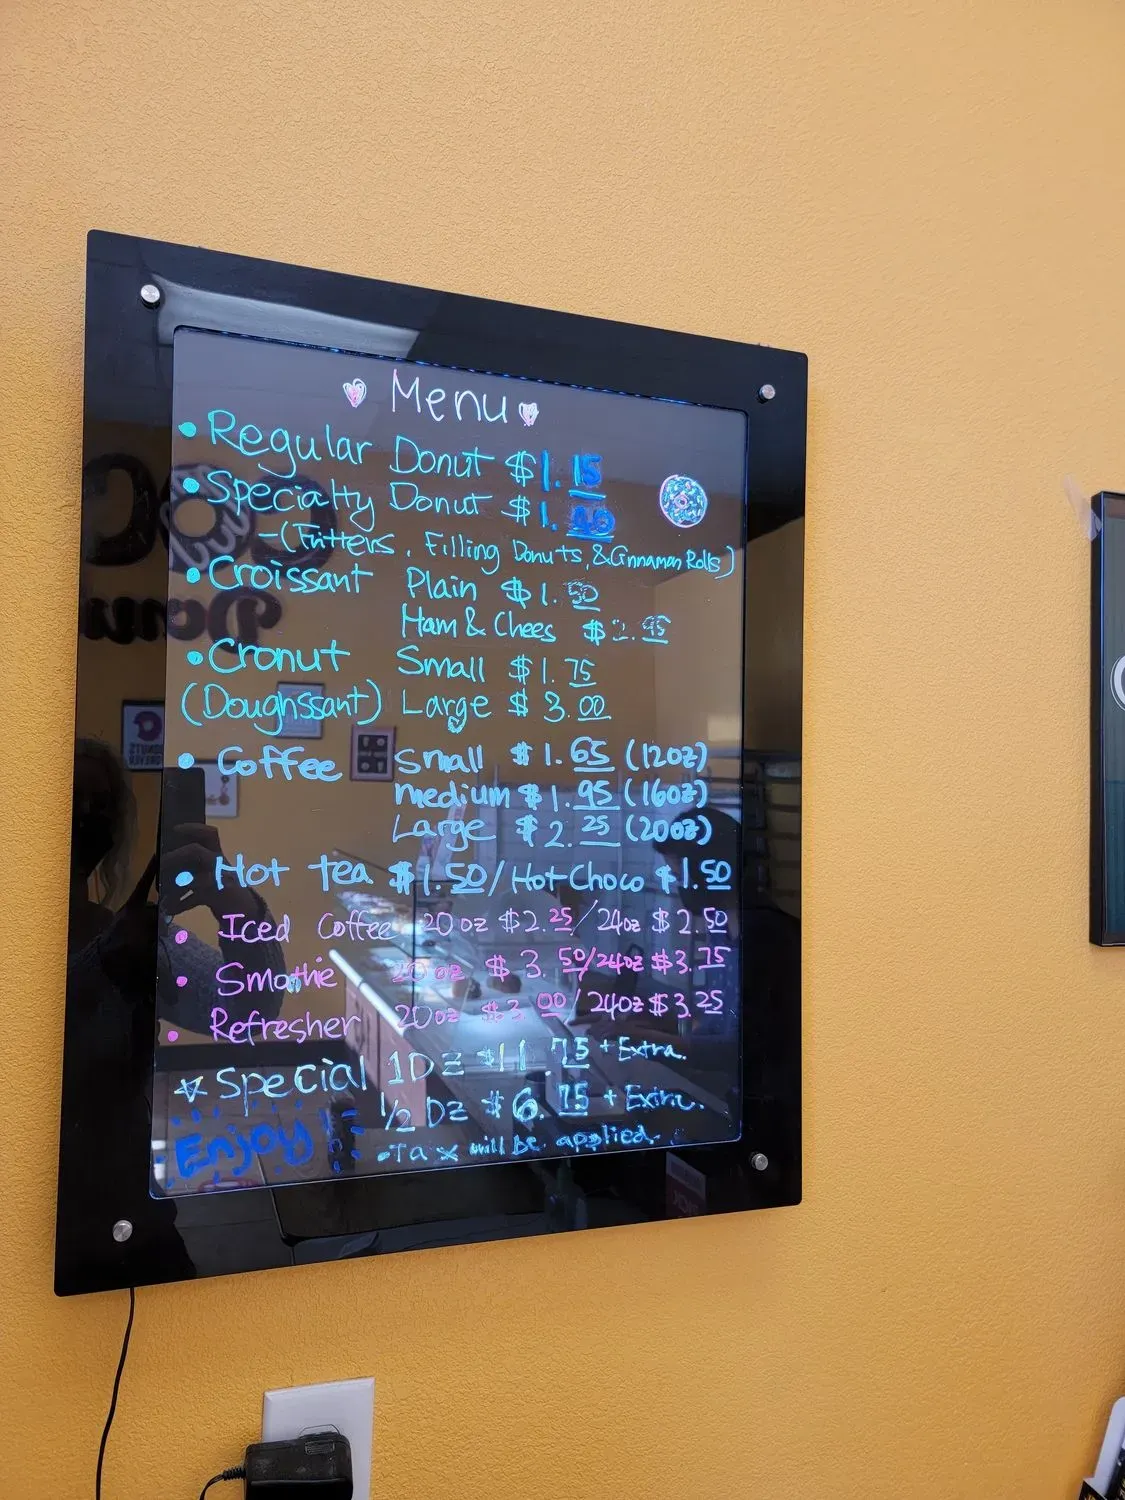 Menu
• Regular Donut $1.15
• Specialty Donut $1.
-(Fritters, Filling Donuts, & Cinnamon Rolls)
• Croissant Plain $1.50
Ham & Chees $2.95
• Cronut Small $1.75
(Doughssant) Large $3.00
• Coffee Small $1.65 (12oz)
medium $1.95 (16oz)
Large $2.25 (20oz)
• Hot tea $1.50/Hot Choco $1.50
• Iced Coffee 20oz $2.25/24oz $2.50
• Smothie 20oz $3.50/24oz $3.75
• Refresher 20oz $3.00/24oz $3.25
☆ Special 1DZ $11.75 + Extra.
1/2 DZ $6.75 + Extra.
Enjoy!
•Tax will Be applied.